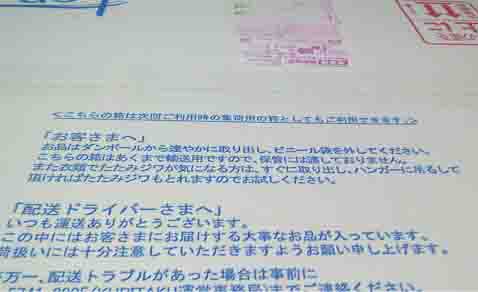 ＜こちらの箱は次回ご利用時の集荷用の箱としてもご利用できます。＞
「お客さまへ」
お品はダンボールから速やかに取り出し、ビニール袋を外してください。
こちらの箱はあくまで輸送用ですので、保管には適しておりません。
また衣類でたたみジワが気になる方は、すぐに取り出し、ハンガーに吊るして
頂ければたたみジワもとれますのでお試しください。
「配送ドライバーさまへ」
いつも運送ありがとうございます。
この中にはお客さまにお届けする大事なお品が入っています。
荷扱いには十分注意していただきますようお願い申し上げます。
万一、配送トラブルがあった場合は事前に
運営事務局)までご連絡ください。